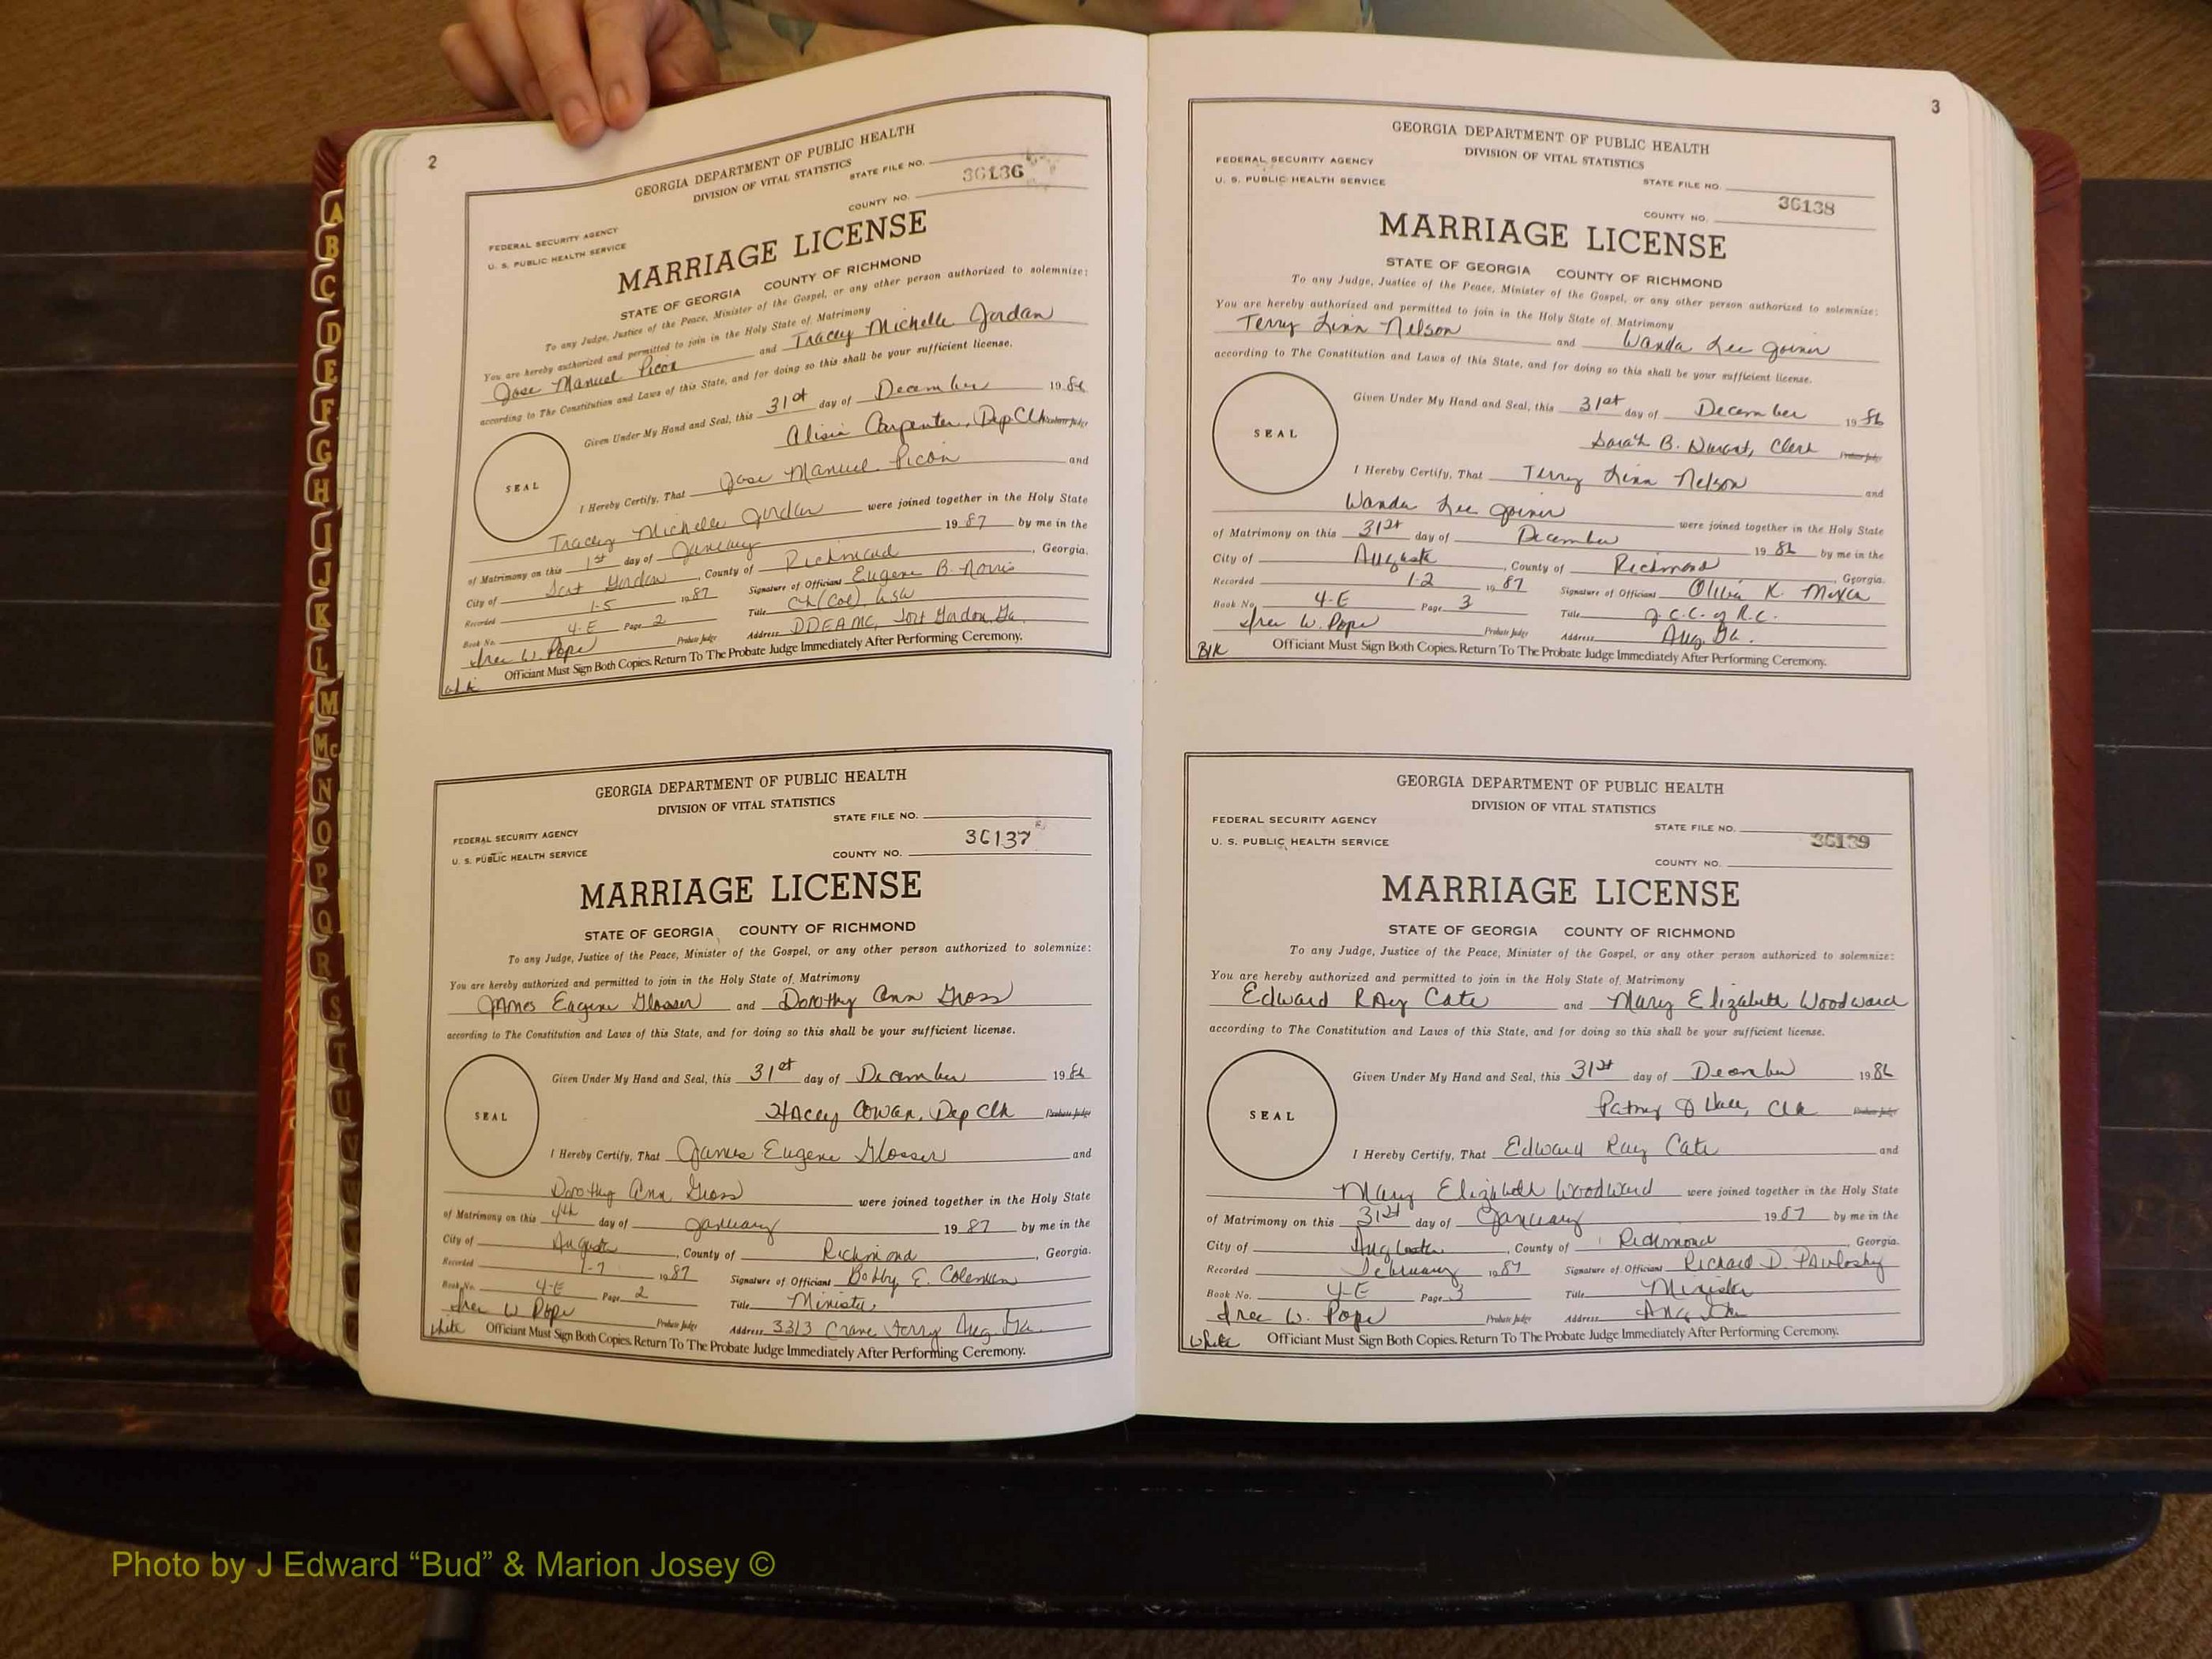 2
GEORGIA DEPARTMENT OF PUBLIC HEALTH
DIVISION OF VITAL STATISTICS
STATE FILE NO.
36136
FEDERAL SECURITY AGENCY
U. S. PUBLIC HEALTH SERVICE
COUNTY NO.
MARRIAGE LICENSE
STATE OF GEORGIA COUNTY OF RICHMOND
To any Judge, Justice of the Peace, Minister of the Gospel, or any other person authorized to solemnize:
You are hereby authorized and permitted to join in the Holy State of Matrimony
Jose Manuel Picon and Tracey Michelle Jordan
according to The Constitution and Laws of this State, and for doing so this shall be your sufficient license.
SEAL
Given Under My Hand and Seal, this 31st day of December 1986
Alisia Carpenter, Dep Clk Probate Judge
I Hereby Certify, That Jose Manuel Picon and
Tracey Michelle Jordan were joined together in the Holy State
of Matrimony on this 1st day of January 1987 by me in the
City of Fort Gordon, County of Richmond, Georgia.
Recorded 1-5 1987 Signature of Officiant Eugene B. Norris
Book No. 4-E Page 2 Title Ch (Col), USA
Probate Judge Address DDEAMC, Fort Gordon, Ga.
W. Pope
Officiant Must Sign Both Copies. Return To The Probate Judge Immediately After Performing Ceremony.
GEORGIA DEPARTMENT OF PUBLIC HEALTH
DIVISION OF VITAL STATISTICS
STATE FILE NO.
FEDERAL SECURITY AGENCY
36137
U. S. PUBLIC HEALTH SERVICE
COUNTY NO.
MARRIAGE LICENSE
STATE OF GEORGIA COUNTY OF RICHMOND
To any Judge, Justice of the Peace, Minister of the Gospel, or any other person authorized to solemnize:
You are hereby authorized and permitted to join in the Holy State of Matrimony
James Eugene Glosser and Dorothy Ann Gross
according to The Constitution and Laws of this State, and for doing so this shall be your sufficient license.
SEAL
Given Under My Hand and Seal, this 31st day of December 1986
Stacey Cowan, Dep Clk Probate Judge
I Hereby Certify, That James Eugene Glosser and
Dorothy Ann Gross were joined together in the Holy State
of Matrimony on this 4th day of January 1987 by me in the
City of Augusta, County of Richmond, Georgia.
Recorded 1-7 1987 Signature of Officiant Bobby E. Coleman
Book No. 4-E Page 2 Title Minister
W. Pope Probate Judge Address 3313 Crane Ferry Aug Ga.
White Officiant Must Sign Both Copies. Return To The Probate Judge Immediately After Performing Ceremony.
3
GEORGIA DEPARTMENT OF PUBLIC HEALTH
DIVISION OF VITAL STATISTICS
FEDERAL SECURITY AGENCY
U. S. PUBLIC HEALTH SERVICE
STATE FILE NO.
36138
COUNTY NO.
MARRIAGE LICENSE
STATE OF GEORGIA COUNTY OF RICHMOND
To any Judge, Justice of the Peace, Minister of the Gospel, or any other person authorized to solemnize:
You are hereby authorized and permitted to join in the Holy State of Matrimony
Terry Linn Nelson and Wanda Lee Joiner
according to The Constitution and Laws of this State, and for doing so this shall be your sufficient license.
SEAL
Given Under My Hand and Seal, this 31st day of December 1986
Sarah B. Clerk Probate Judge
I Hereby Certify, That Terry Linn Nelson and
Wanda Lee Joiner were joined together in the Holy State
of Matrimony on this 31st day of December 1986 by me in the
City of Augusta, County of Richmond, Georgia.
Recorded 1-2 1987 Signature of Officiant Olivia K.
Book No. 4-E Page 3 Title J.C.C. of R.C.
W. Pope Probate Judge Address Aug. Ga.
Blk Officiant Must Sign Both Copies. Return To The Probate Judge Immediately After Performing Ceremony.
GEORGIA DEPARTMENT OF PUBLIC HEALTH
DIVISION OF VITAL STATISTICS
FEDERAL SECURITY AGENCY
STATE FILE NO.
U. S. PUBLIC HEALTH SERVICE
36139
COUNTY NO.
MARRIAGE LICENSE
STATE OF GEORGIA COUNTY OF RICHMOND
To any Judge, Justice of the Peace, Minister of the Gospel, or any other person authorized to solemnize:
You are hereby authorized and permitted to join in the Holy State of Matrimony
Edward Ray Cate and Mary Elizabeth Woodward
according to The Constitution and Laws of this State, and for doing so this shall be your sufficient license.
SEAL
Given Under My Hand and Seal, this 31st day of December 1986
Clk Probate Judge
I Hereby Certify, That Edward Ray Cate and
Mary Elizabeth Woodward were joined together in the Holy State
of Matrimony on this 31st day of January 1987 by me in the
City of Augusta, County of Richmond, Georgia.
Recorded February 1987 Signature of Officiant Richard D. Pavlosky
Book No. 4-E Page 3 Title Minister
W. Pope Probate Judge Address Aug Ga
White Officiant Must Sign Both Copies. Return To The Probate Judge Immediately After Performing Ceremony.
A
B
C
D
E
F
G
H
I
J
K
L
M
Mc
N
O
P
Q
R
S
T
U
Photo by J Edward “Bud” & Marion Josey ©